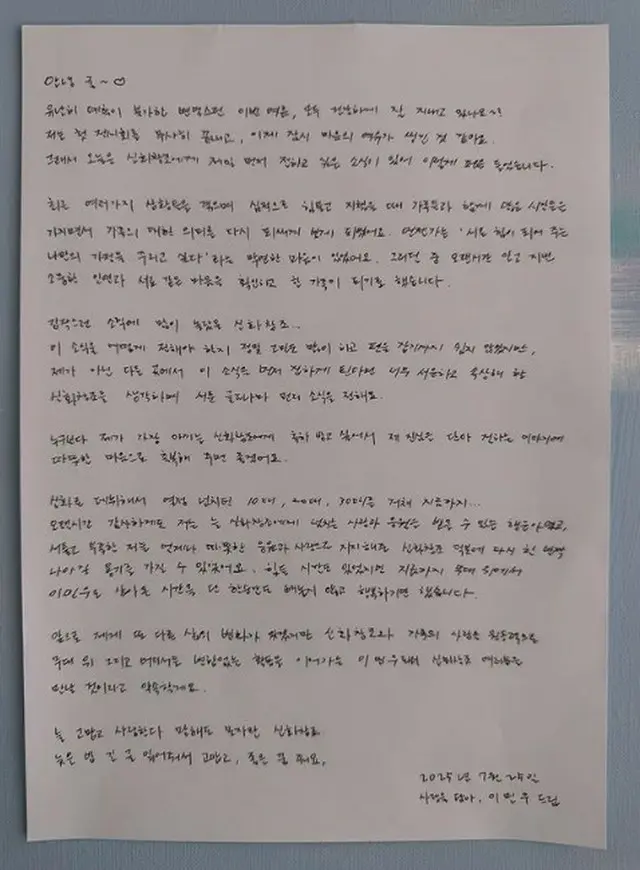 안녕 들~♡
유난히 예측이 불가한 변덕스런 이번 여름, 모두 건강하게 잘 지내고 있나요~?
저는 첫 전시회를 무사히 끝내고, 이제 잠시 마음의 여유가 생긴 것 같아요.
그래서 오늘은 신화창조에게 제일 먼저 전하고 싶은 소식이 있어 이렇게 펜을 들었습니다.
최근 여러가지 상황들을 겪으며 심적으로 힘들고 지쳤을 때 가족들과 함께 많은 시간을
가지면서 가족의 대한 의미를 다시 되새기게 되었어요. 언젠가는 '서로 힘이 되어 주는
나만의 가정을 꾸리고 싶다'라는 막연한 마음이 있었어요. 그러던 중 오랜시간 알고 지낸
소중한 인연과 서로 같은 마음을 확인하고 한 가족이 되기로 했습니다.
갑작스런 소식에 많이 놀랐을 신화창조...
이 소식을 어떻게 전해야 할지 정말 고민도 많이 하고 펜을 잡기까지 쉽지 않았지만,
제가 아닌 다른 곳에서 이 소식을 먼저 전하게 된다면 너무 서운하고 속상해 할
신화창조를 생각하며 서툰 글로나마 먼저 소식을 전해요.
누구보다 제가 가장 아끼는 신화창조에게 축하 받고 싶어서 제 진심을 담아 전하는 이야기에
따뜻한 마음으로 축복해 주면 좋겠어요.
신화로 데뷔해서 열정 넘치던 10대, 20대, 30대를 거쳐 지금까지...
오랜시간 감사하게도 저는 늘 신화창조에게 넘치는 사랑과 응원을 받을 수 있는 행운아였고,
서툴고 부족한 저를 언제나 따뜻한 응원과 사랑으로 지지해준 신화창조 덕분에 다시 한 번
나아갈 용기를 가질 수 있었어요. 힘든 시간도 있었지만 지금까지 무대 위에서
이민우로 살아온 시간을 단 한순간도 해보지 않고 행복하기만 했습니다.
앞으로 제게 또 다른 삶의 변화가 찾겠지만 신화창조와 가족의 사랑을 원동력으로
무대 위 그리고 어디서든 변함없는 활동을 이어가는 이민우로 신화창조 여러분을
만날 것이라고 약속할게요.
늘 고맙고 사랑한다 말해도 모자란 신화창조
늦은 밤 긴 글 읽어줘서 고맙고, 좋은 꿈 꿔요.
2025년 7월 25일
사랑을 담아, 이민우 드림